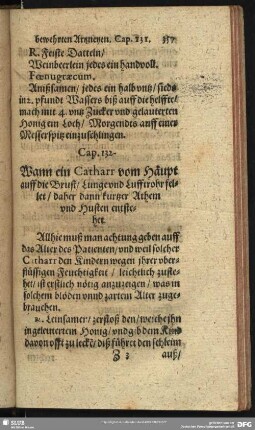 bewehrten Artzneyen. Cap. 131. 357
R. Feiste Datteln/
Weinbeerlein jedes ein handvoll.
Fœnugræcum.
Anißsamen/ jedes ein halb vntz/ sieds
in 2. pfundt Wassers biß auff die helffte/
mach mit 4. vntz Zucker vnd geläuterten
Honig ein Loch/ Morgendts auff einer
Messerspitz einzuschlingen.
Cap. 132.
Wann ein Catharr vom Häupt
auff die Brust/ Lunge vnd Lufftrohr fel-
let/ daher dann kurtzer Athem
vnd Husten entste-
het.
Allhie muß man achtung geben auff
das Alter des Patienten/ vnd weil solcher
Catharr den Kindern wegen jhrer vber-
flüssigen Feuchtigkeit/ leichtlich zuste-
het/ ist erstlich nötig anzuzeigen/ was in
solchem blöden vnnd zarten Alter zuge-
brauchen.
R. Leinsamen/ zerstoß den/ weiche jhn
in geleutertem Honig/ vnd gib dem Kind
davon offt zu lecken/ diß führet den schleim
Z 3 auß/
SLUB
DFG